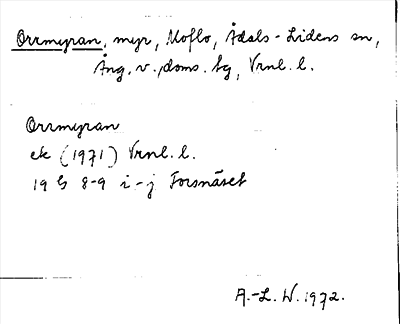 Orrmyran, myr, Moflo, Ådals-Lidens sn,
Ång. v. doms. tg, Vrnl. l.
Orrmyran
ek (1971) Vrnl. l.
19 G 8-9 i-j Forsnäset
A.-L. W. 1972.